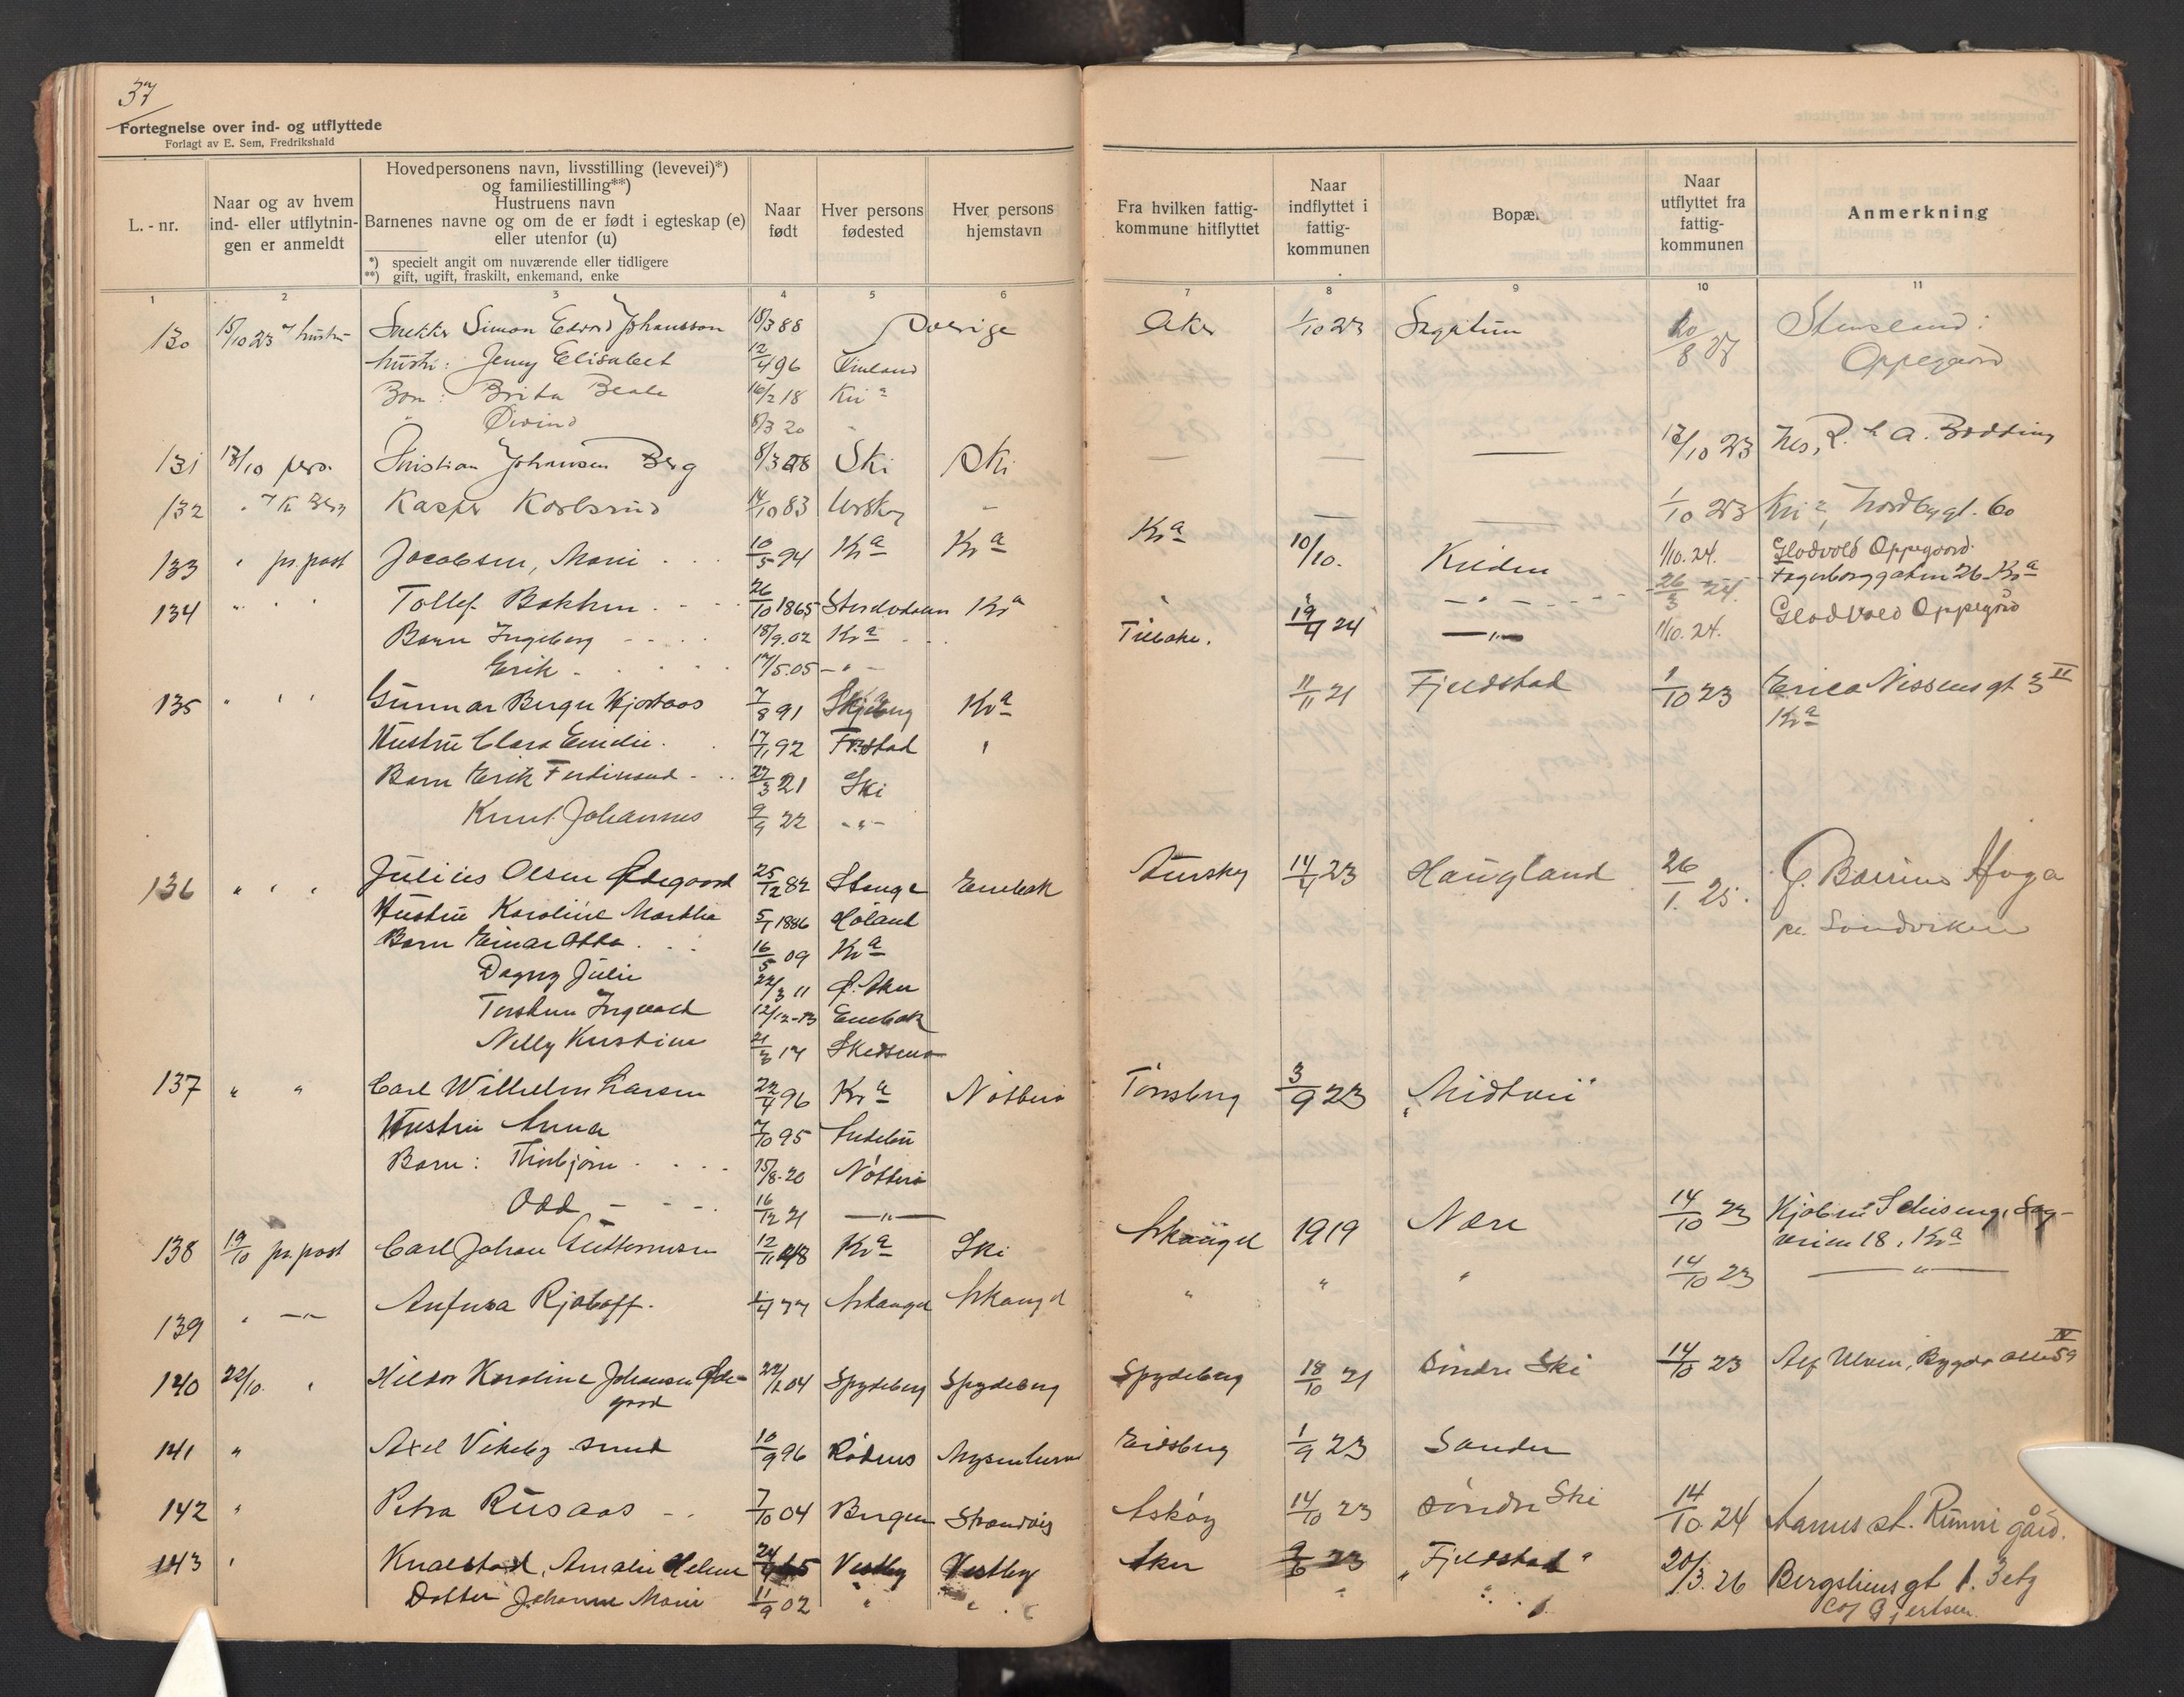 37
Fortegnelse over ind- og utflyttede
Forlagt av E. Sem, Fredrikshald
L. - nr.
Naar og av hvem ind- eller utflytnin- gen er anmeldt
Hovedpersonens navn, livsstilling (levevei)*)
og familiestilling**)
Hustruens navn
Barnenes navne og om de er født i egteskap (e)
eller utenfor (u)
*) specielt angit om nuværende eller tidligere
**) gift, ugift, fraskilt, enkemand, enke
Naar født
Hver persons fødested
Hver persons hjemstavn
Fra hvilken fattig- kommune hitflyttet
Naar indflyttet i fattig- kommunen
Bopæl
Naar utflyttet fra fattig- kommunen
Anmerkning
1 2 3 4 5 6 7 8 9 10 11
130 15/10 23 Snekker Simon Edvard Johansson 18/3 88 Sverige Aker 1/10 23 Sagatun 20/8 27 Stensland:
hustr: Jenny Elisabet 12/4 96 Finland Oppegaard
Barn: Brita Beate 16/2 18 Kria
" Øivind 8/3 20 "
131 13/10 pers. Kristian Johansen Berg 8/3 Ski Ski — — — 13/10 23 Nes, R.
132 " Kasper Karlsrud 14/10 83 Urskog " — — 1/10 23 Kria, Nordbygt. 60
133 " pr. post Jacobsen, Marie 10/5 94 Kra Kra Kra 10/10. Kilden 1/10. 24. Glodvold Oppegaard.
26/3 24. Fagerborggaten 26 Kra
134 " " " Tollef Bakken 26/10 1865 Kra " — " —
Barn Ingeborg 18/9.02 Kra Tilbake. 19/4 24 — " — 1/10. 24. Glodvold Oppegård
Erik 17/5.05 — " —
135 " " " Gunnar Berger Hjortaas 7/8 91 Skjeberg Kra 11/11 21 Fjeldstad 1/10 23 Erica Nissens gt 3 II
Kra
Hustru Clara Emilie 17/1 92 Fr.stad "
Barn Erik Ferdinand 27/3 21 Ski
Knut Johannes 9/9 22 — " —
136 " " " Julius Olsen Ødegaard 25/12 82 Stange Enebak Aurskog 14/4 23 Haugland 26/1. 25. Høga
Hustru Karoline Marthea 5/7 1886 Høland pr. Sandviken
Barn Einar Otto 16/5 09 Kra
Dagny Julie 22/3 11 Ø. Aker
Torstein Ingvald 12/12-13 Enebak
Nelly Kristine 21/3 17 Skedsmo
137 " " Carl Wilhelm Larsen 22/4 96 Kra Nøtterø Tønsberg 3/9 23 "Midtvei"
Hustru Anna 7/10 95 Andebu
Barn: Thorbjørn 15/8-20 Nøtterø
Odd 16/12 21 — " —
138 19/10 pr. post Carl Johan Guttormsen 12/11 Kra Ski Arkangel 1919 Nære 14/10 23 Kjøbm. Sag-
veien 18, Kra
139 " — " — Anfusa Rjaboff. 1/4 77 Arkangel Arkangel " " " 14/10 23 — " —
140 22/10. " Hildur Karoline Johansen Øde- 22/1 04 Spydeberg Spydeberg Spydeberg 18/10 21 Søndre Ski 14/10 23 Alf Ulven, Bygdø alle 59 IV
gaard
141 " Axel Vikeby smed 10/9 96 Rødenes Mysen Eidsberg 1/9 23 Sander
142 " Petra Rusaas 7/10 04 Bergen Strandvig Askøy 14/10 23 Søndre Ski 14/10. 24 gård.
143 " Knalstad, Amalie Helene 24/4 65 Vestby Vestby Aker 9/6 23 "Fjeldstad" 20/3. 26 Bergsliens gt 1. 3 etg
Datter Johanne Marie 11/9 02 " " " " c/o Gjertsen.